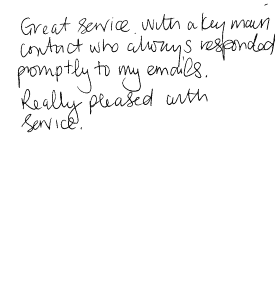 Great service. With a key main
contact who always responded
promptly to my emails.
Really pleased with
service.